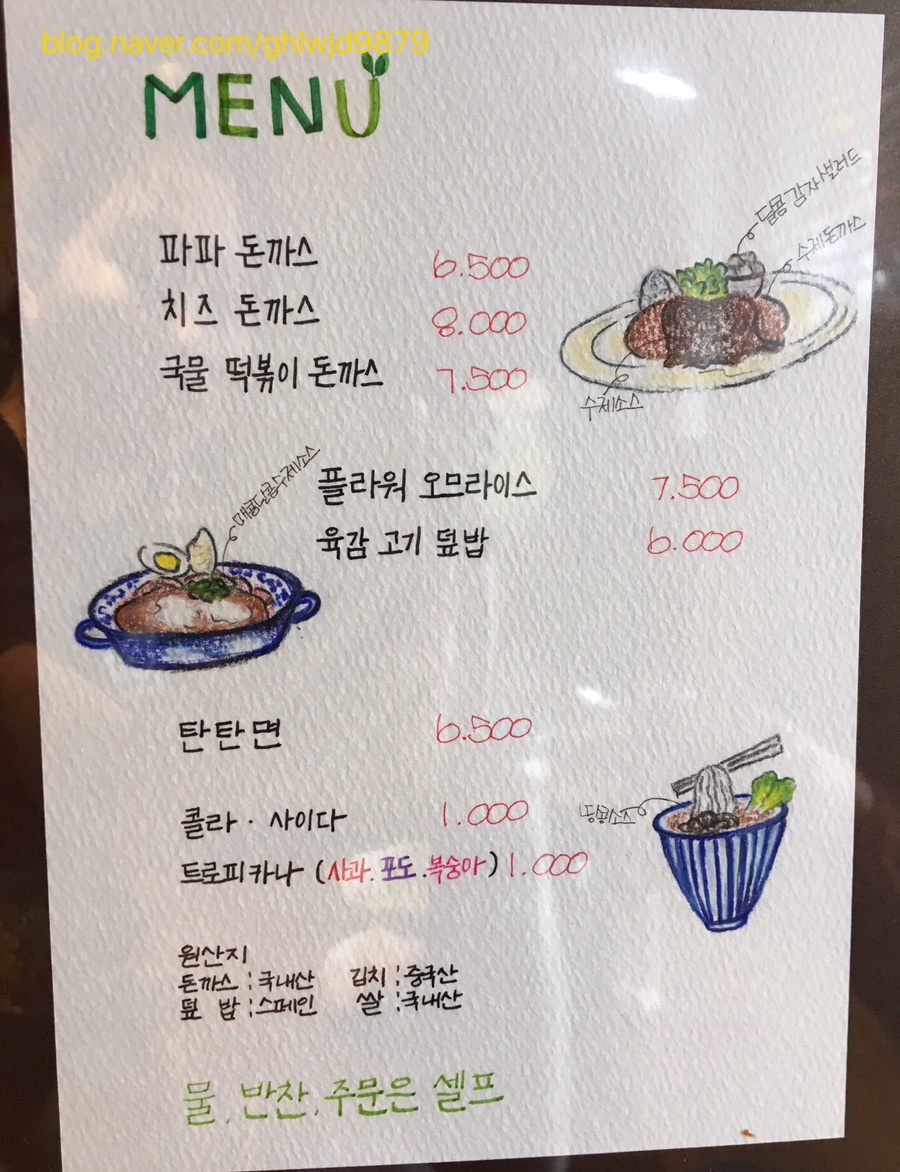 blog.naver.com/ghlwjd9879
MENU
파파 돈까스 6.500
치즈 돈까스 8.000
국물 떡볶이 돈까스 7.500
달콤 감자샐러드
수제돈까스
수제소스
플라워 오므라이스 7.500
육감 고기 덮밥 6.000
매콤달콤수제소스
탄탄면 6.500
콜라 · 사이다 1.000
트로피카나 (사과.포도.복숭아) 1.000
땅콩소스
원산지
돈까스 : 국내산 김치 : 중국산
덮 밥 : 스페인 쌀 : 국내산
물, 반찬, 주문은 셀프